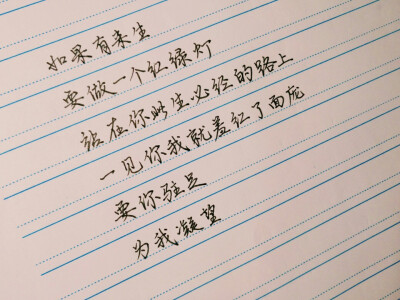 如果有来生
要做一个红绿灯
站在你此生必经的路上
一见你我就羞红了面庞
要你驻足
为我凝望